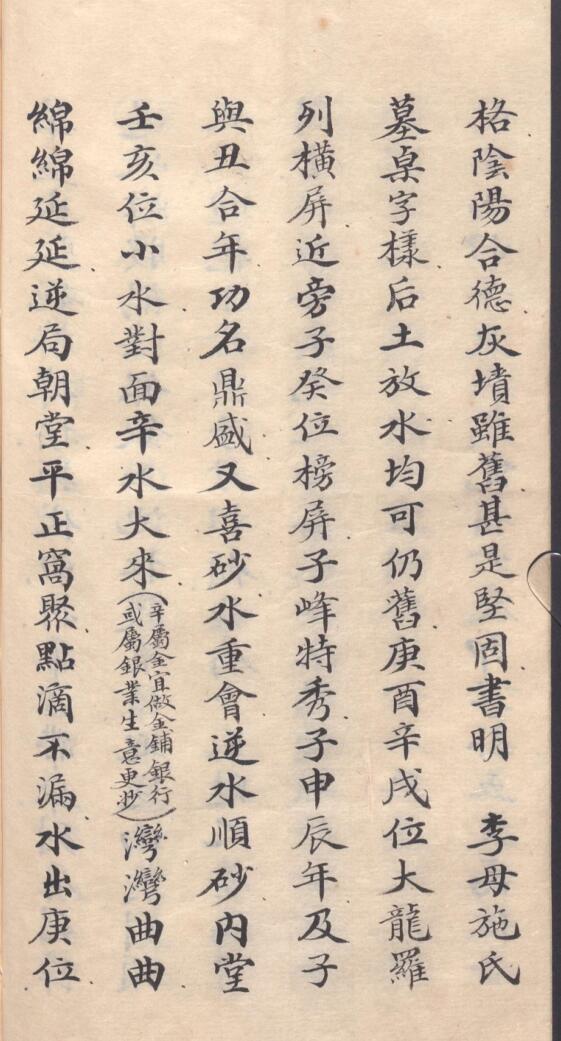 格陰陽合德灰墳雖舊甚是堅固書明 李母施氏
墓桌字樣后土放水均可仍舊庚酉辛戌位大龍羅
列橫屏近旁子癸位榜屏子峰特秀子申辰年及子
與丑合年功名鼎盛又喜砂水重會逆水順砂內堂
壬亥位小水對面辛水大來(辛屬金宜做金鋪銀行或屬銀業生意更妙)灣灣曲曲
綿綿延延逆局朝堂平正窩聚點滴不漏水出庚位